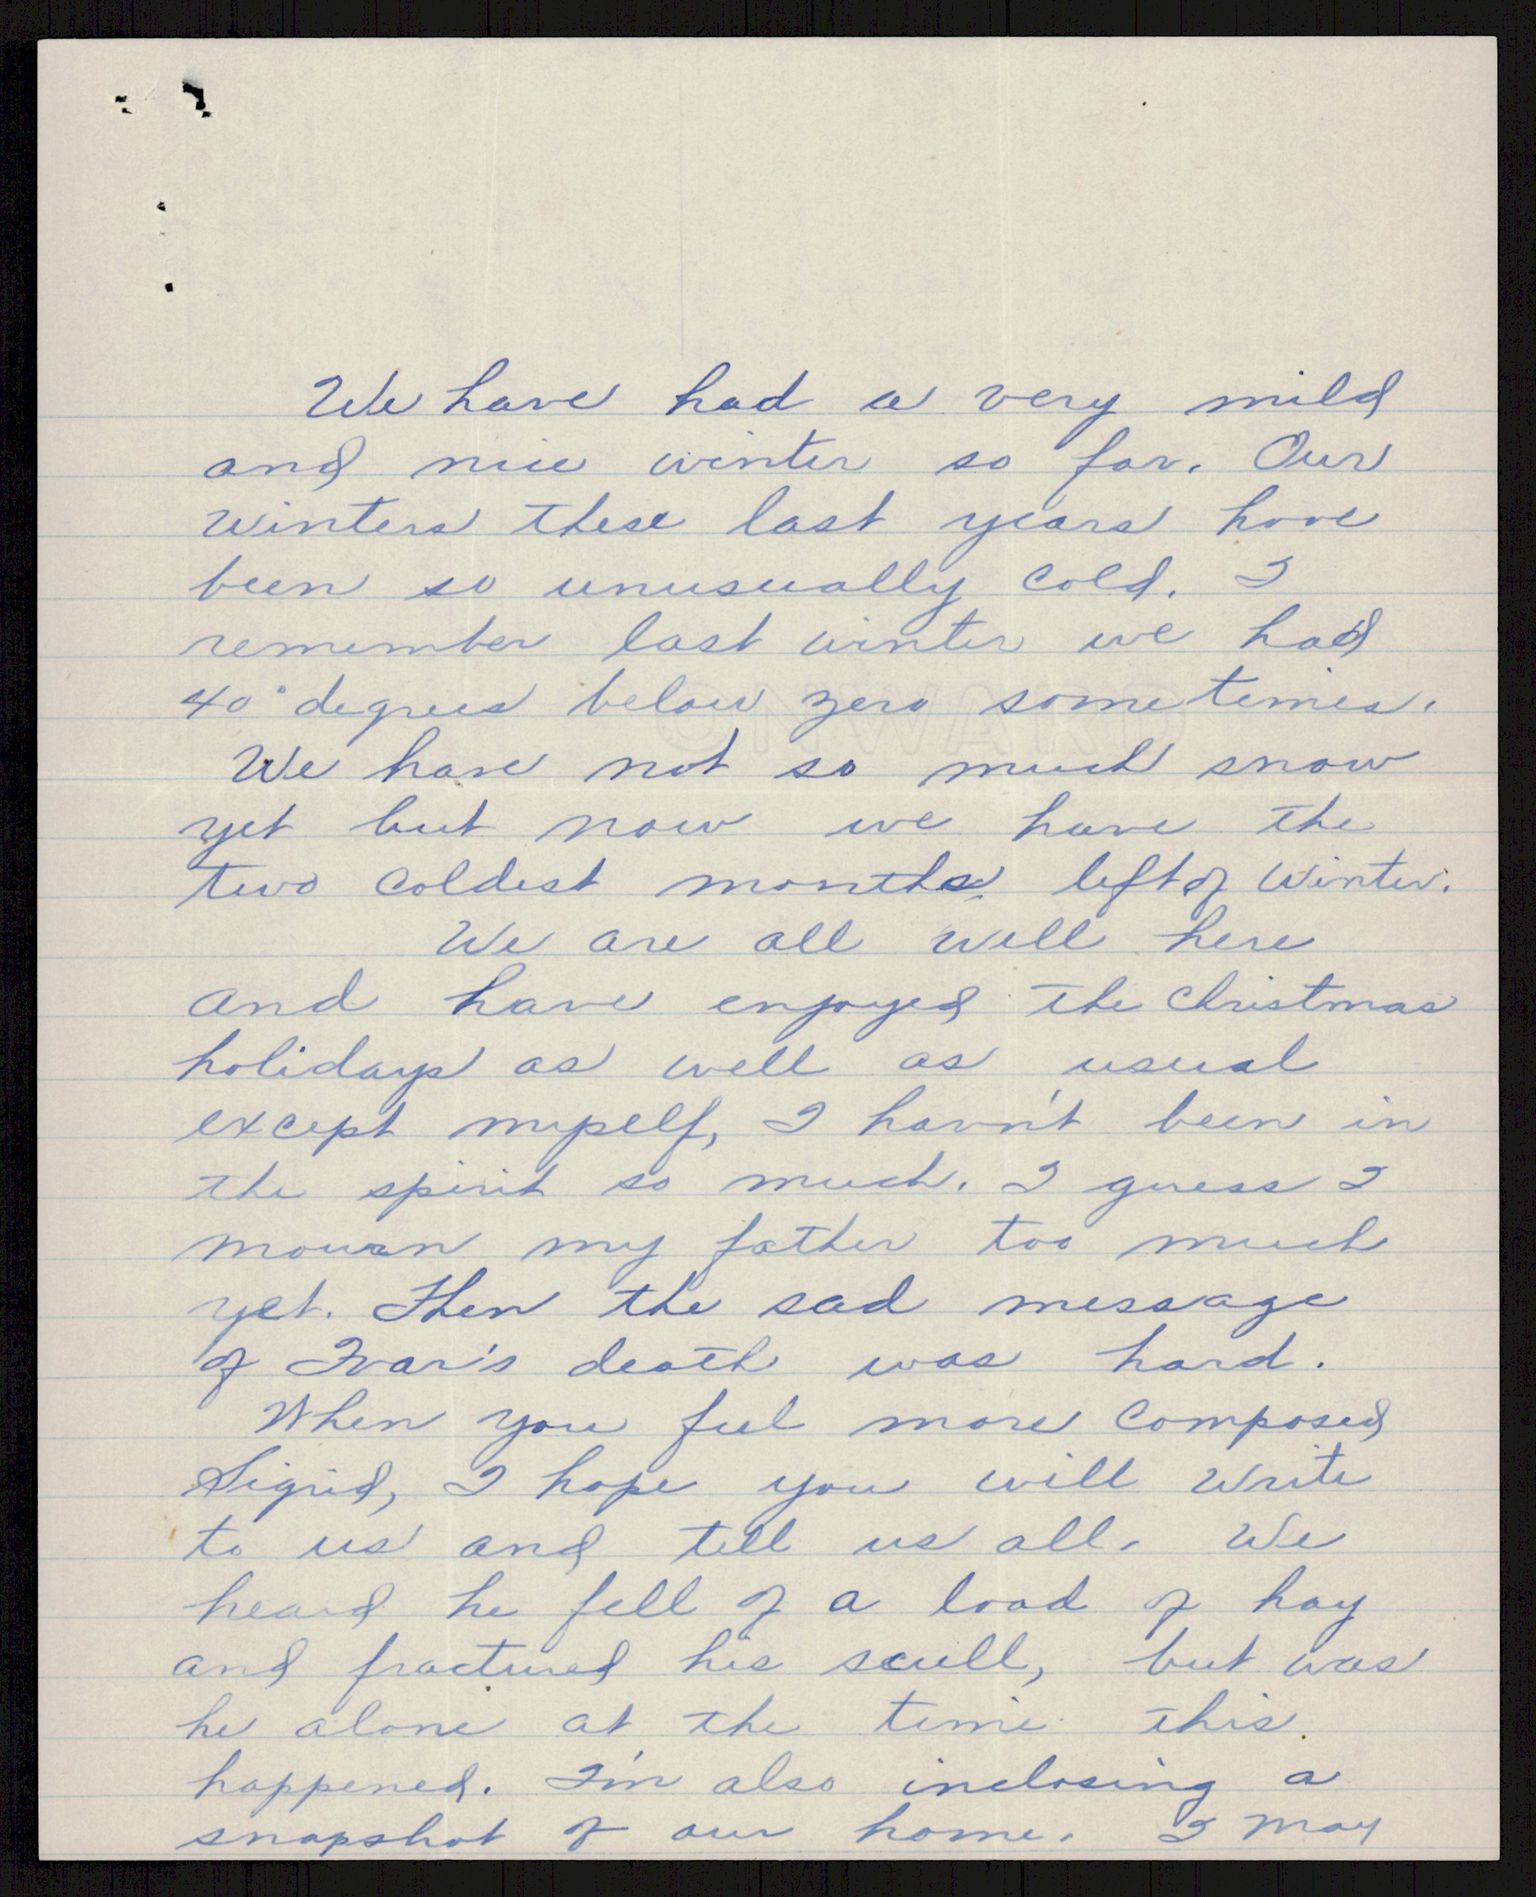 We have had a very mild
and nice winter so far. Our
winters these last years have
been so unusually cold. I
remember last winter we had
40° degrees below zero sometimes.
We have not so much snow
yet but now we have the
two coldest months left of winter.
We are all well here
and have enjoyed the Christmas
holidays as well as usual
except myself, I havn't been in
the spirit so much. I guess I
mourn my father too much
yet. Then the sad message
of Ivar's death was hard.
When you feel more composed
Sigrid, I hope you will write
to us and tell us all. We
heard he fell of a load of hay
and fractured his scull, but was
he alone at the time this
happened. I'm also inclosing a
snapshot of our home. I may
ONWARD